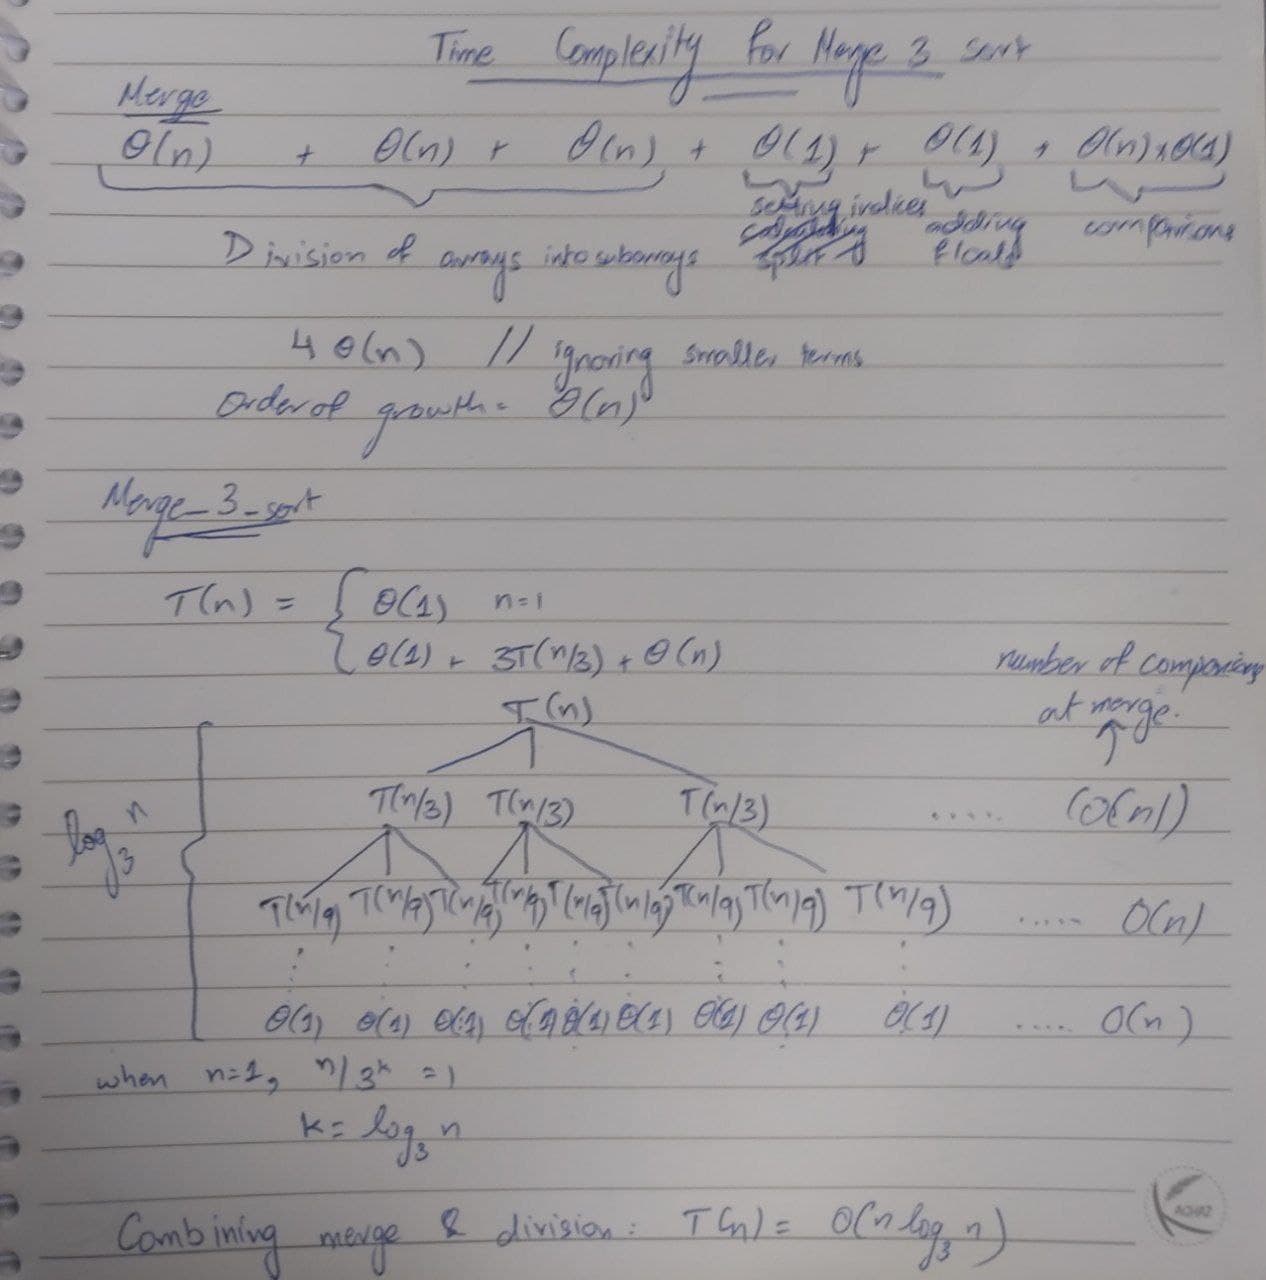 Time Complexity for Merge 3 sort
Merge
Θ(n) + Θ(n) + Θ(n) + Θ(1) + Θ(1) + Θ(n)*Θ(1)
Division of arrays into subarrays
setting indices
adding floats
comparisons
4 Θ(n) // ignoring smaller terms
Order of growth = Θ(n)
Merge_3_sort
T(n) = { Θ(1) n=1
Θ(1) + 3T(n/3) + Θ(n)
number of comparisons
at merge.
T(n)
T(n/3) T(n/3) T(n/3) ..... (O(n))
log₃ n
T(n/9) T(n/9) T(n/9) T(n/9) T(n/9) T(n/9) T(n/9) T(n/9) T(n/9) ..... O(n)
Θ(1) Θ(1) Θ(1) Θ(1) Θ(1) Θ(1) Θ(1) Θ(1) Θ(1) ..... O(n)
when n=1, n/3ᵏ = 1
k = log₃ n
Combining merge & division: T(n) = O(n log₃ n)